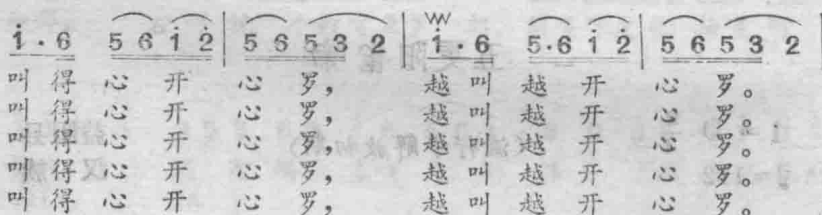 i̇ · 6 5 6 i̇ 2̇ | 5 6 5 3 2 | i̇ · 6 5 · 6 i̇ 2̇ | 5 6 5 3 2 |
叫 得 心 开 心 罗, 越 叫 越 开 心 罗。
叫 得 心 开 心 罗, 越 叫 越 开 心 罗。
叫 得 心 开 心 罗, 越 叫 越 开 心 罗。
叫 得 心 开 心 罗, 越 叫 越 开 心 罗。
叫 得 心 开 心 罗, 越 叫 越 开 心 罗。